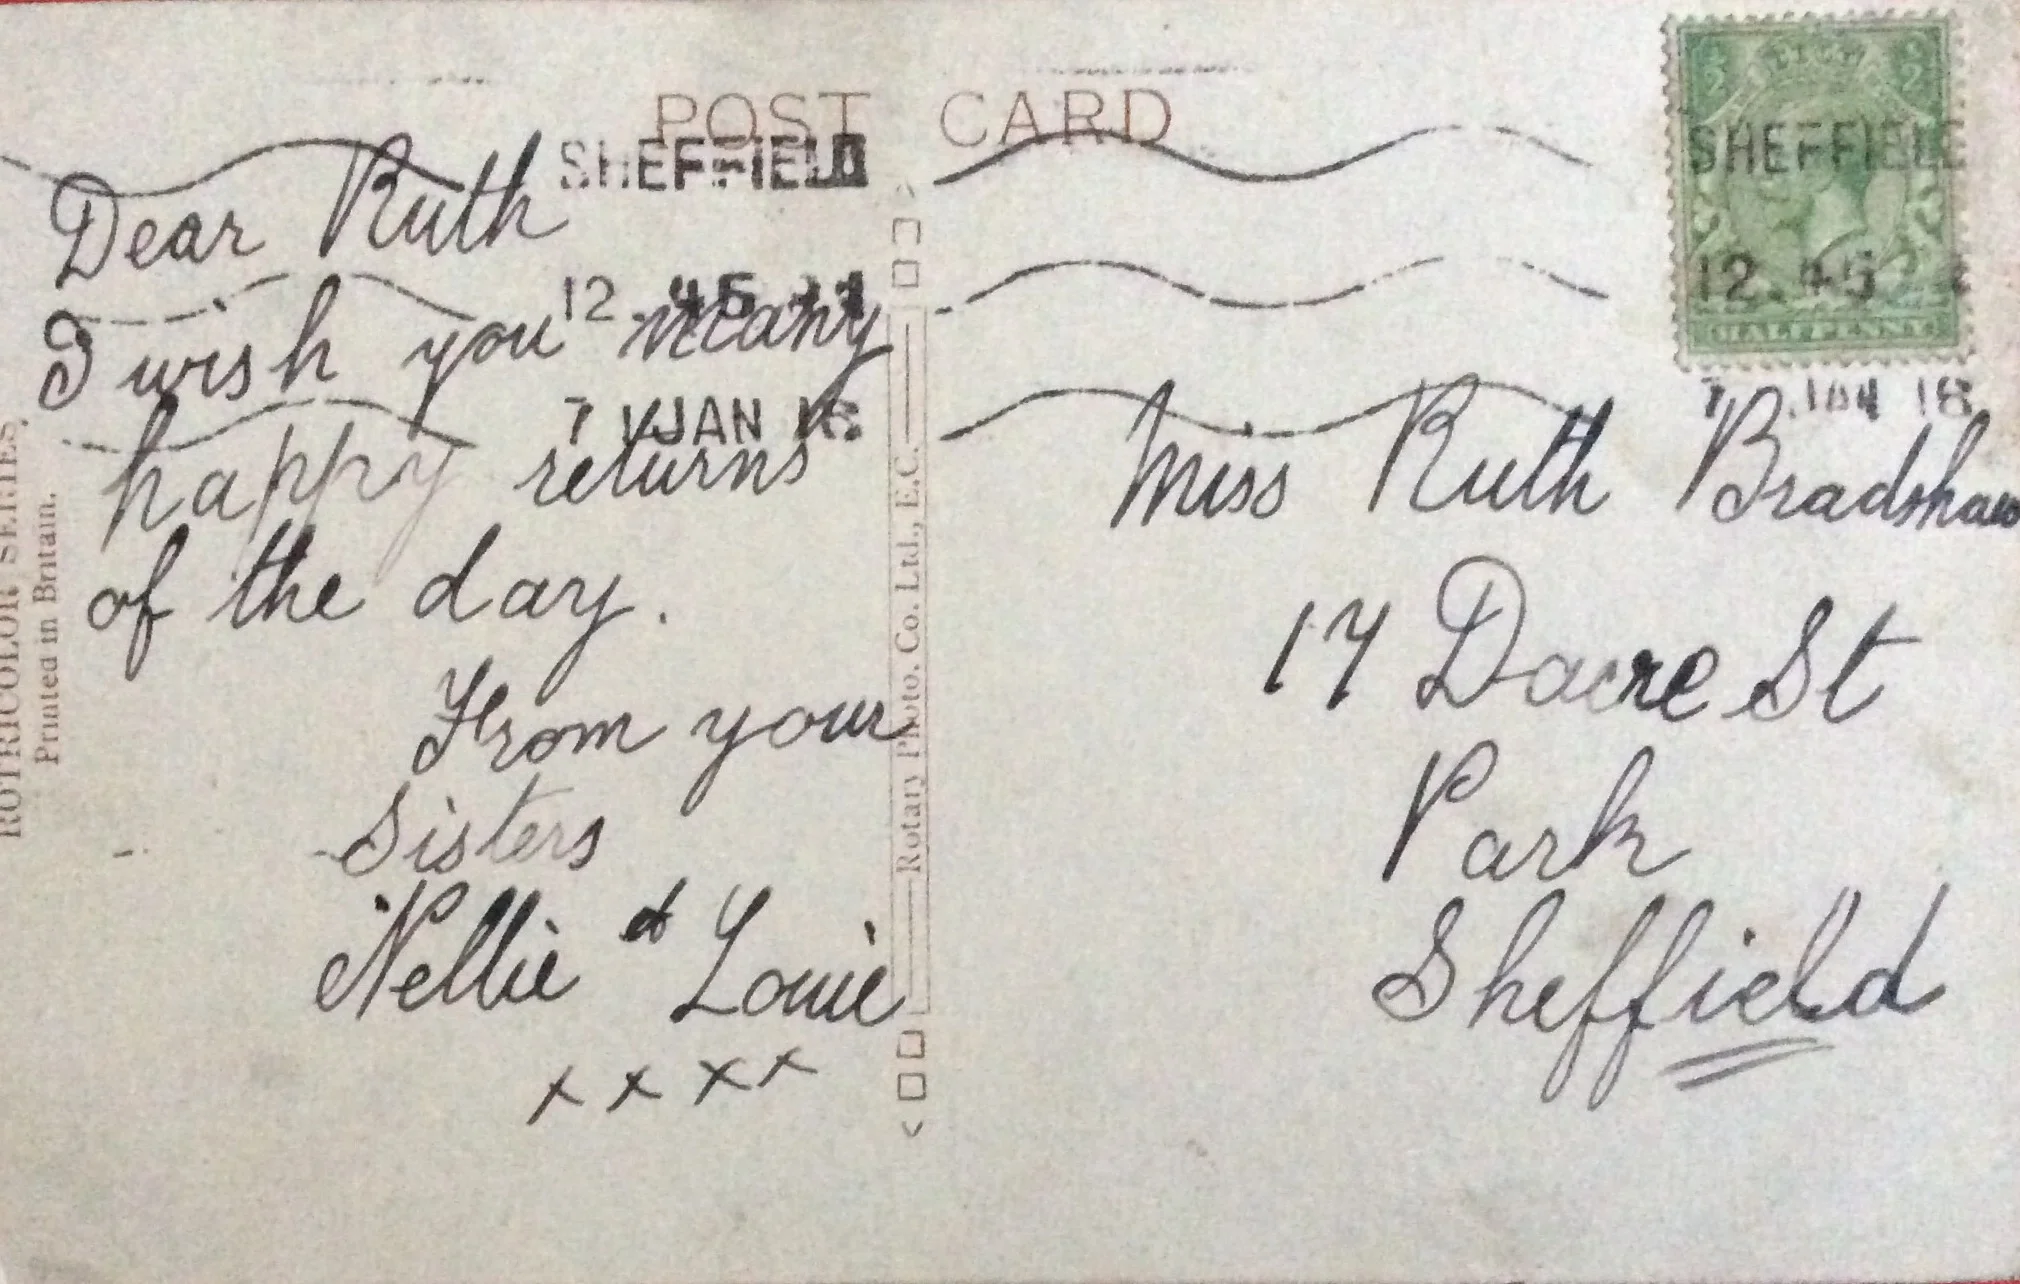 POST CARD
SHEFFIELD
12.45
7 JAN 18
SHEFFIELD
12.45
7 JAN 18
HALFPENNY
Dear Ruth
I wish you many
happy returns
of the day.
From your
Sisters
Nellie & Louie
x x x x
Miss Ruth Bradshaw
17 Dacre St
Park
Sheffield
Rotary Photo. Co. Ltd., E.C.
ROTRICOLOR SERIES,
Printed in Britain.